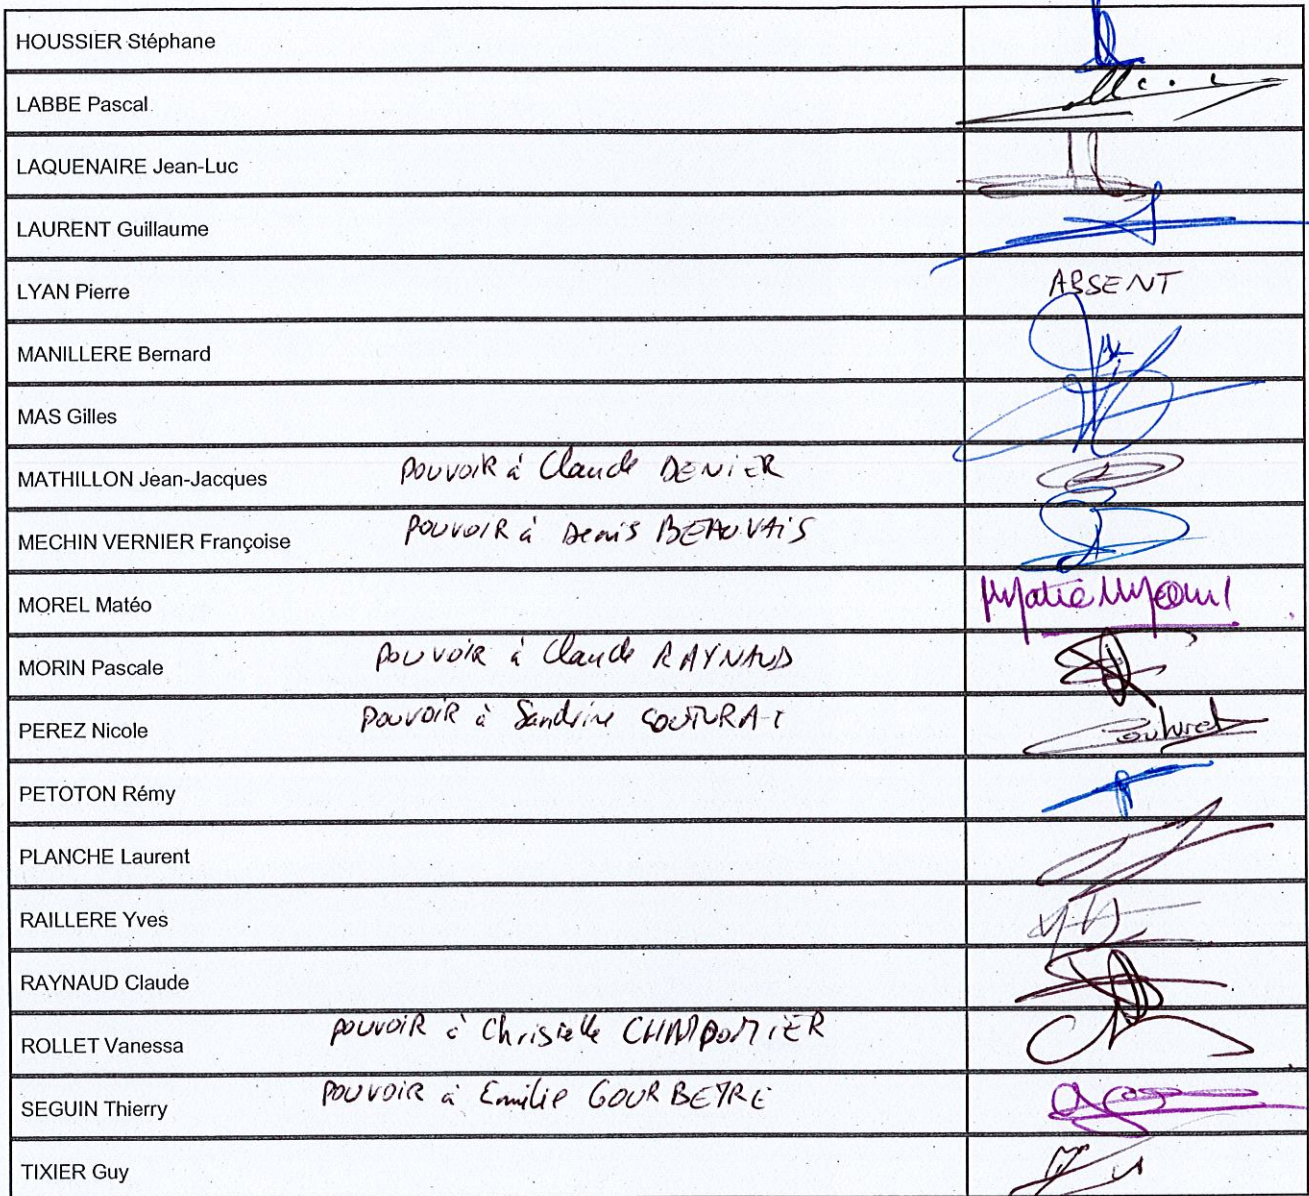 HOUSSIER Stéphane
LABBE Pascal
LAQUENAIRE Jean-Luc
LAURENT Guillaume
LYAN Pierre ABSENT
MANILLERE Bernard
MAS Gilles
MATHILLON Jean-Jacques POUVOIR à Claude DENIER
MECHIN VERNIER Françoise POUVOIR à Denis BEAUVAIS
MOREL Matéo
MORIN Pascale POUVOIR à Claude RAYNAUD
PEREZ Nicole POUVOIR à Sandrine COUTURAT
PETOTON Rémy
PLANCHE Laurent
RAILLERE Yves
RAYNAUD Claude
ROLLET Vanessa POUVOIR à Christelle CHAMPOMIER
SEGUIN Thierry POUVOIR à Emilie GOURBEYRE
TIXIER Guy